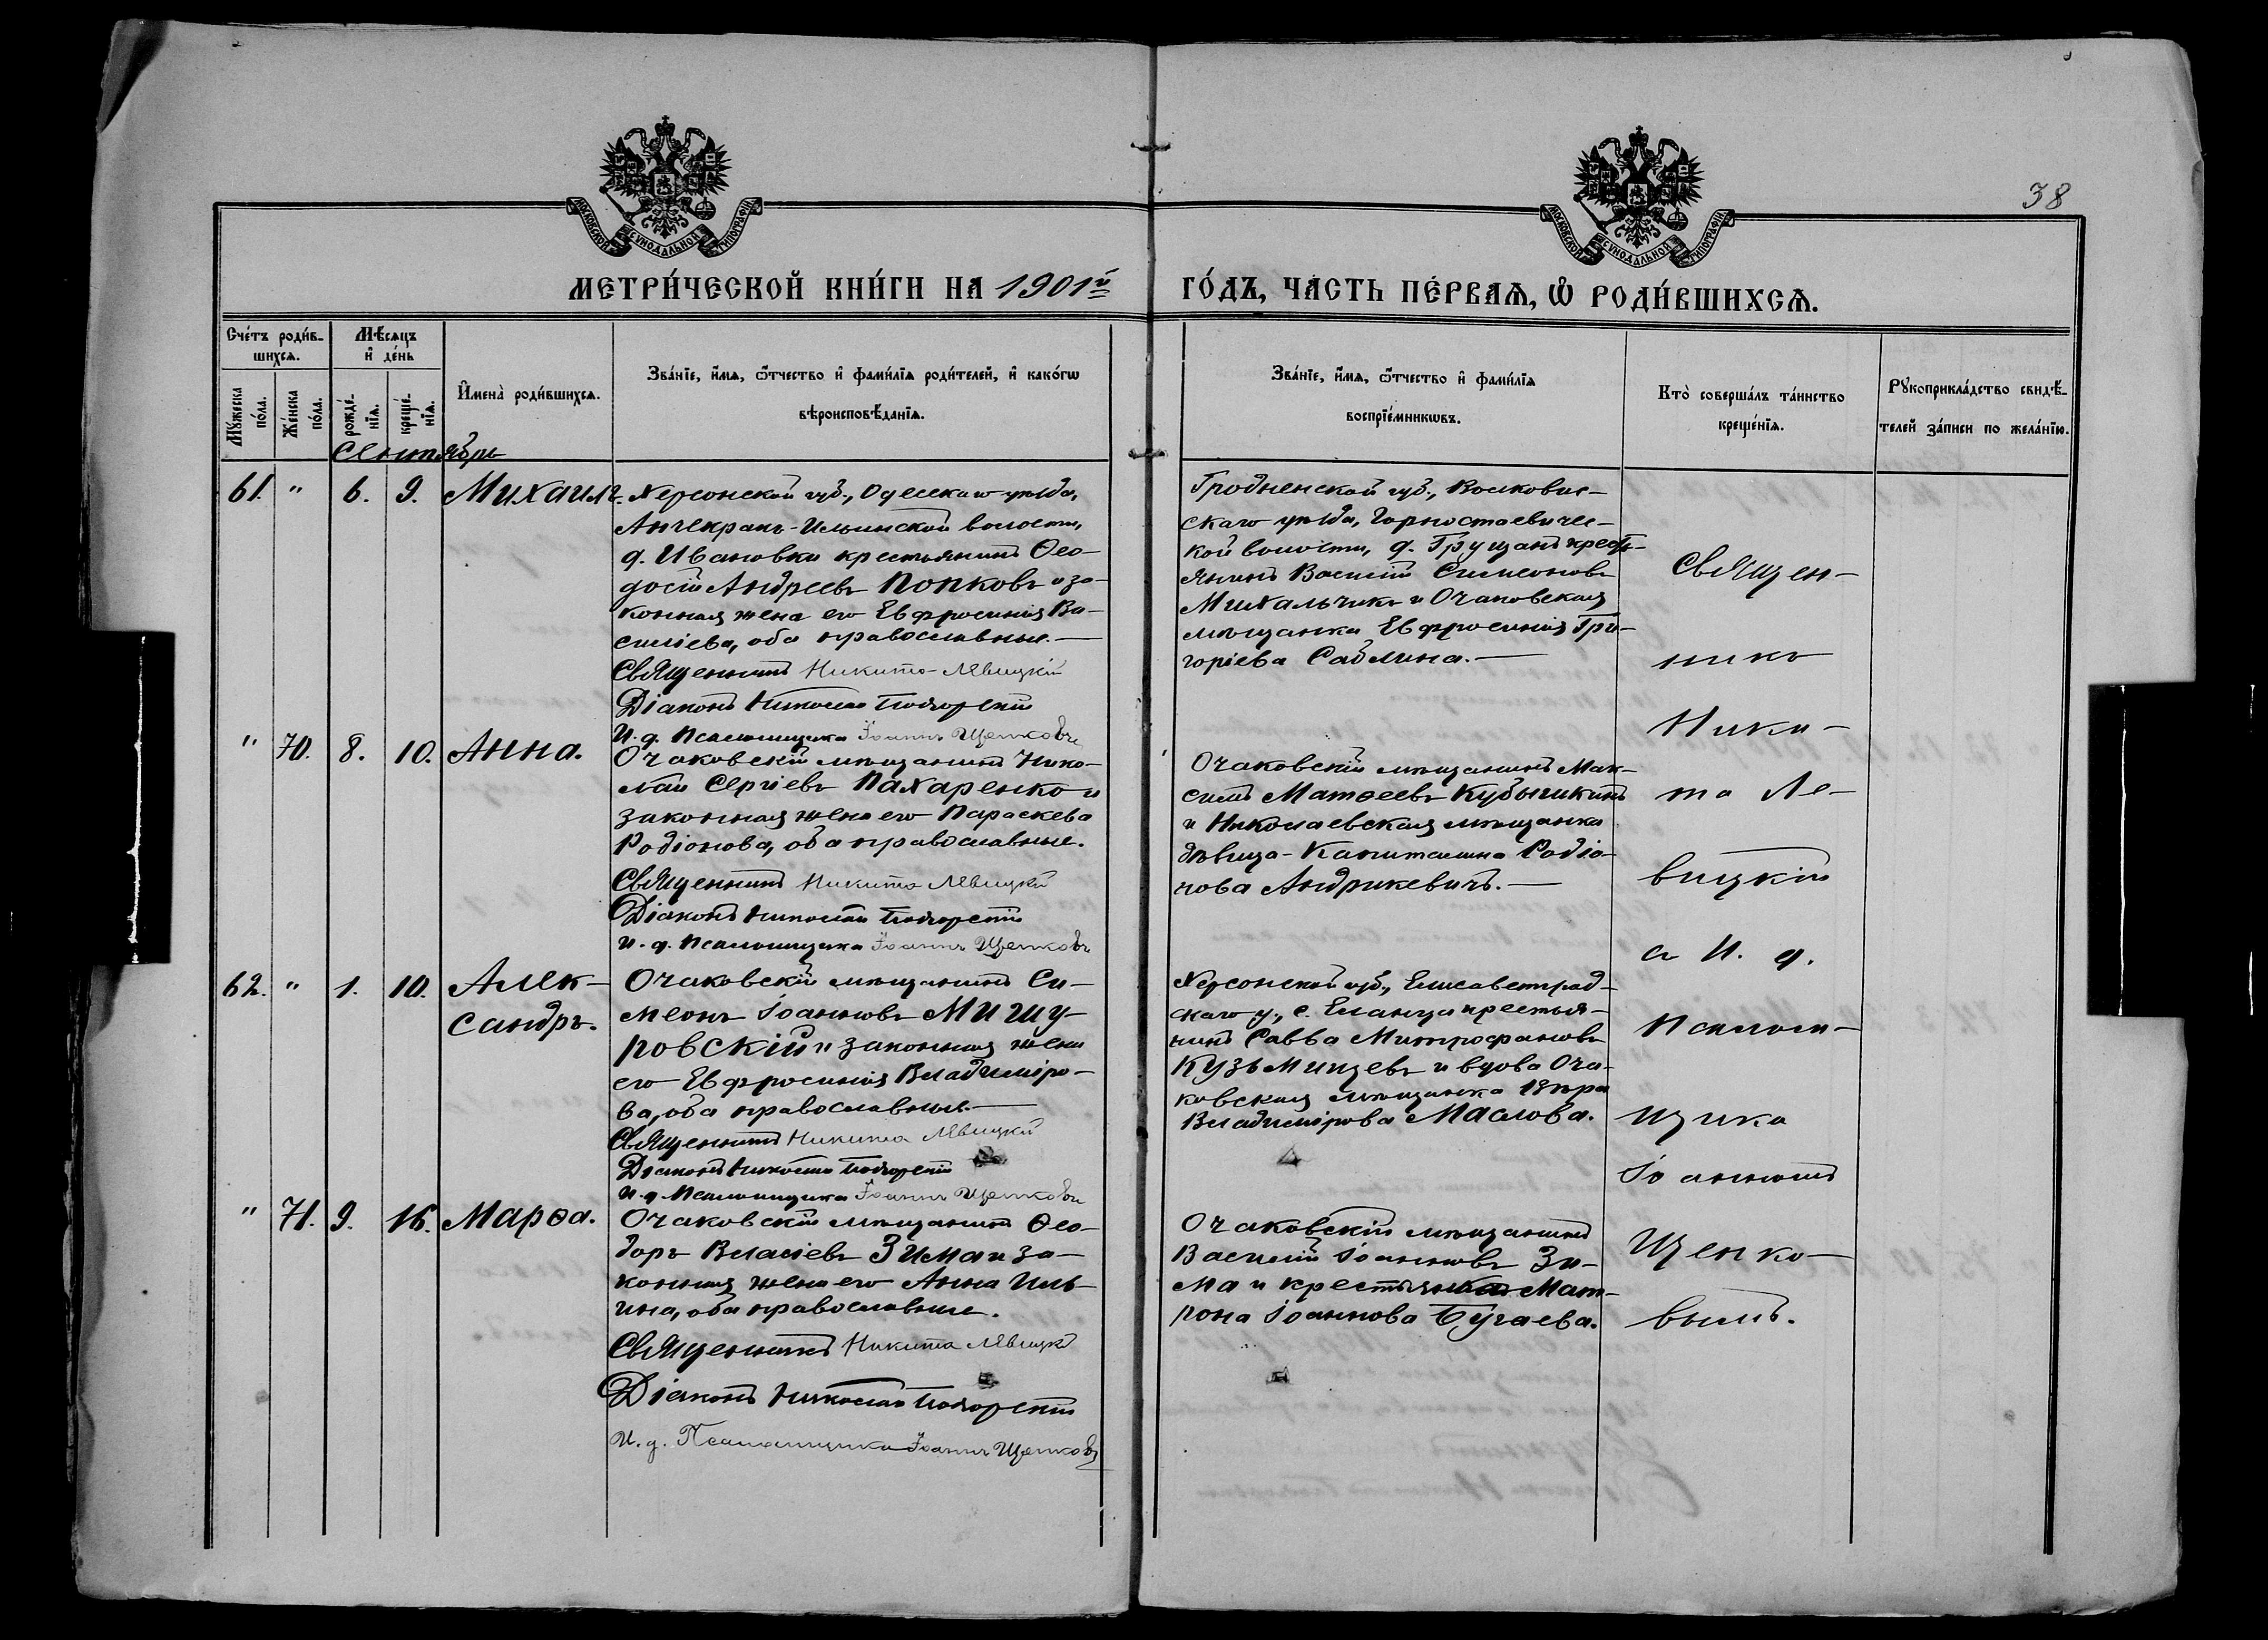 38
МОСКОВСКОЙ СУНОДАЛЬНОЙ ТИПОГРАФІИ
МОСКОВСКОЙ СУНОДАЛЬНОЙ ТИПОГРАФІИ
МЕТРИ́ЧЕСКОЙ КНИ́ГИ НА 1901й
ГО́ДЪ, ЧА́СТЬ ПЕ́РВАѦ, Ѽ РОДИ́ВШИХСѦ.
Сче́тъ роди́в-
шихсѧ.
Мѣ́сѧцъ
и҆ де́нь
Мꙋ́жеска
по́ла.
Же́нска
по́ла.
рожде́-
нїѧ.
креще́-
нїѧ.
И҆мена̀ роди́вшихсѧ.
Зва́нїе, и҆́мѧ, ѻ҆́тчество и҆ фами́лїѧ роди́телей, и҆ како́гѡ
вѣроисповѣ́данїѧ.
Зва́нїе, и҆́мѧ, ѻ҆́тчество и҆ фами́лїѧ
воспрїе́мникѡвъ.
Кто̀ соверша́лъ та́инство
креще́нїѧ.
Рꙋкоприкла́дство свидѣ́-
телей за́писи по жела́нїю.
Сентябрь
61. " 6. 9. Михаилъ.
Херсонской губ., Одесскаго уѣзда,
Анчекракъ-Ильинской волости,
д. Ивановки крестьянинъ Ѳео-
досій Андреевъ Попковъ и за-
конная жена его Евфросинія Ва-
силіева, оба православные.—
Священникъ Никита Левицкій
Діаконъ Николай Подгорскій
И. д. Псаломщика Іоаннъ Щепковъ
Гродненской губ., Волковис-
скаго уѣзда, Горностаевичес-
кой волости, д. Грущанъ кресть-
янинъ Василій Симеоновъ
Михальчикъ и Очаковская
мѣщанка Евфросинія Гри-
горіева Саблина.—
" 70. 8. 10. Анна.
Очаковскій мѣщанинъ Нико-
лай Сергіевъ Пахаренко и
законная жена его Параскева
Родіонова, оба православные.
Священникъ Никита Левицкій
Діаконъ Николай Подгорскій
И. д. Псаломщика Іоаннъ Щепковъ
Очаковскій мѣщанинъ Мак-
симъ Матѳеевъ Кубышкинъ
и Николаевская мѣщанка
дѣвица-Капиталина Родіо-
нова Андрикевичъ.—
62. " 1. 10. Алек-
сандръ.
Очаковскій мѣщанинъ Си-
меонъ Іоанновъ Мишу-
ровскій и законная жена
его Евфросинія Владиміро-
ва, оба православные.—
Священникъ Никита Левицкій
Діаконъ Николай Подгорскій
И. д. Псаломщика Іоаннъ Щепковъ
Херсонской губ., Елисаветград-
скаго у., с. Еланца крестья-
нинъ Савва Митрофановъ
Кузьминцевъ и вдова Оча-
ковская мѣщанка Вѣра
Владимірова Маслова.
" 71. 9. 16. Марѳа.
Очаковскій мѣщанинъ Ѳео-
доръ Власіевъ Зима и за-
конная жена его Анна Иль-
ина, оба православные.
Священникъ Никита Левицкій
Діаконъ Николай Подгорскій
И. д. Псаломщика Іоаннъ Щепковъ
Очаковскій мѣщанинъ
Василій Іоанновъ Зи-
ма и крестьянка Мат-
рона Іоаннова Бугаева.
Священ-
никъ
Ники-
та Ле-
вицкій
с И. д.
Псалом-
щика
Іоанномъ
Щепко-
вымъ.